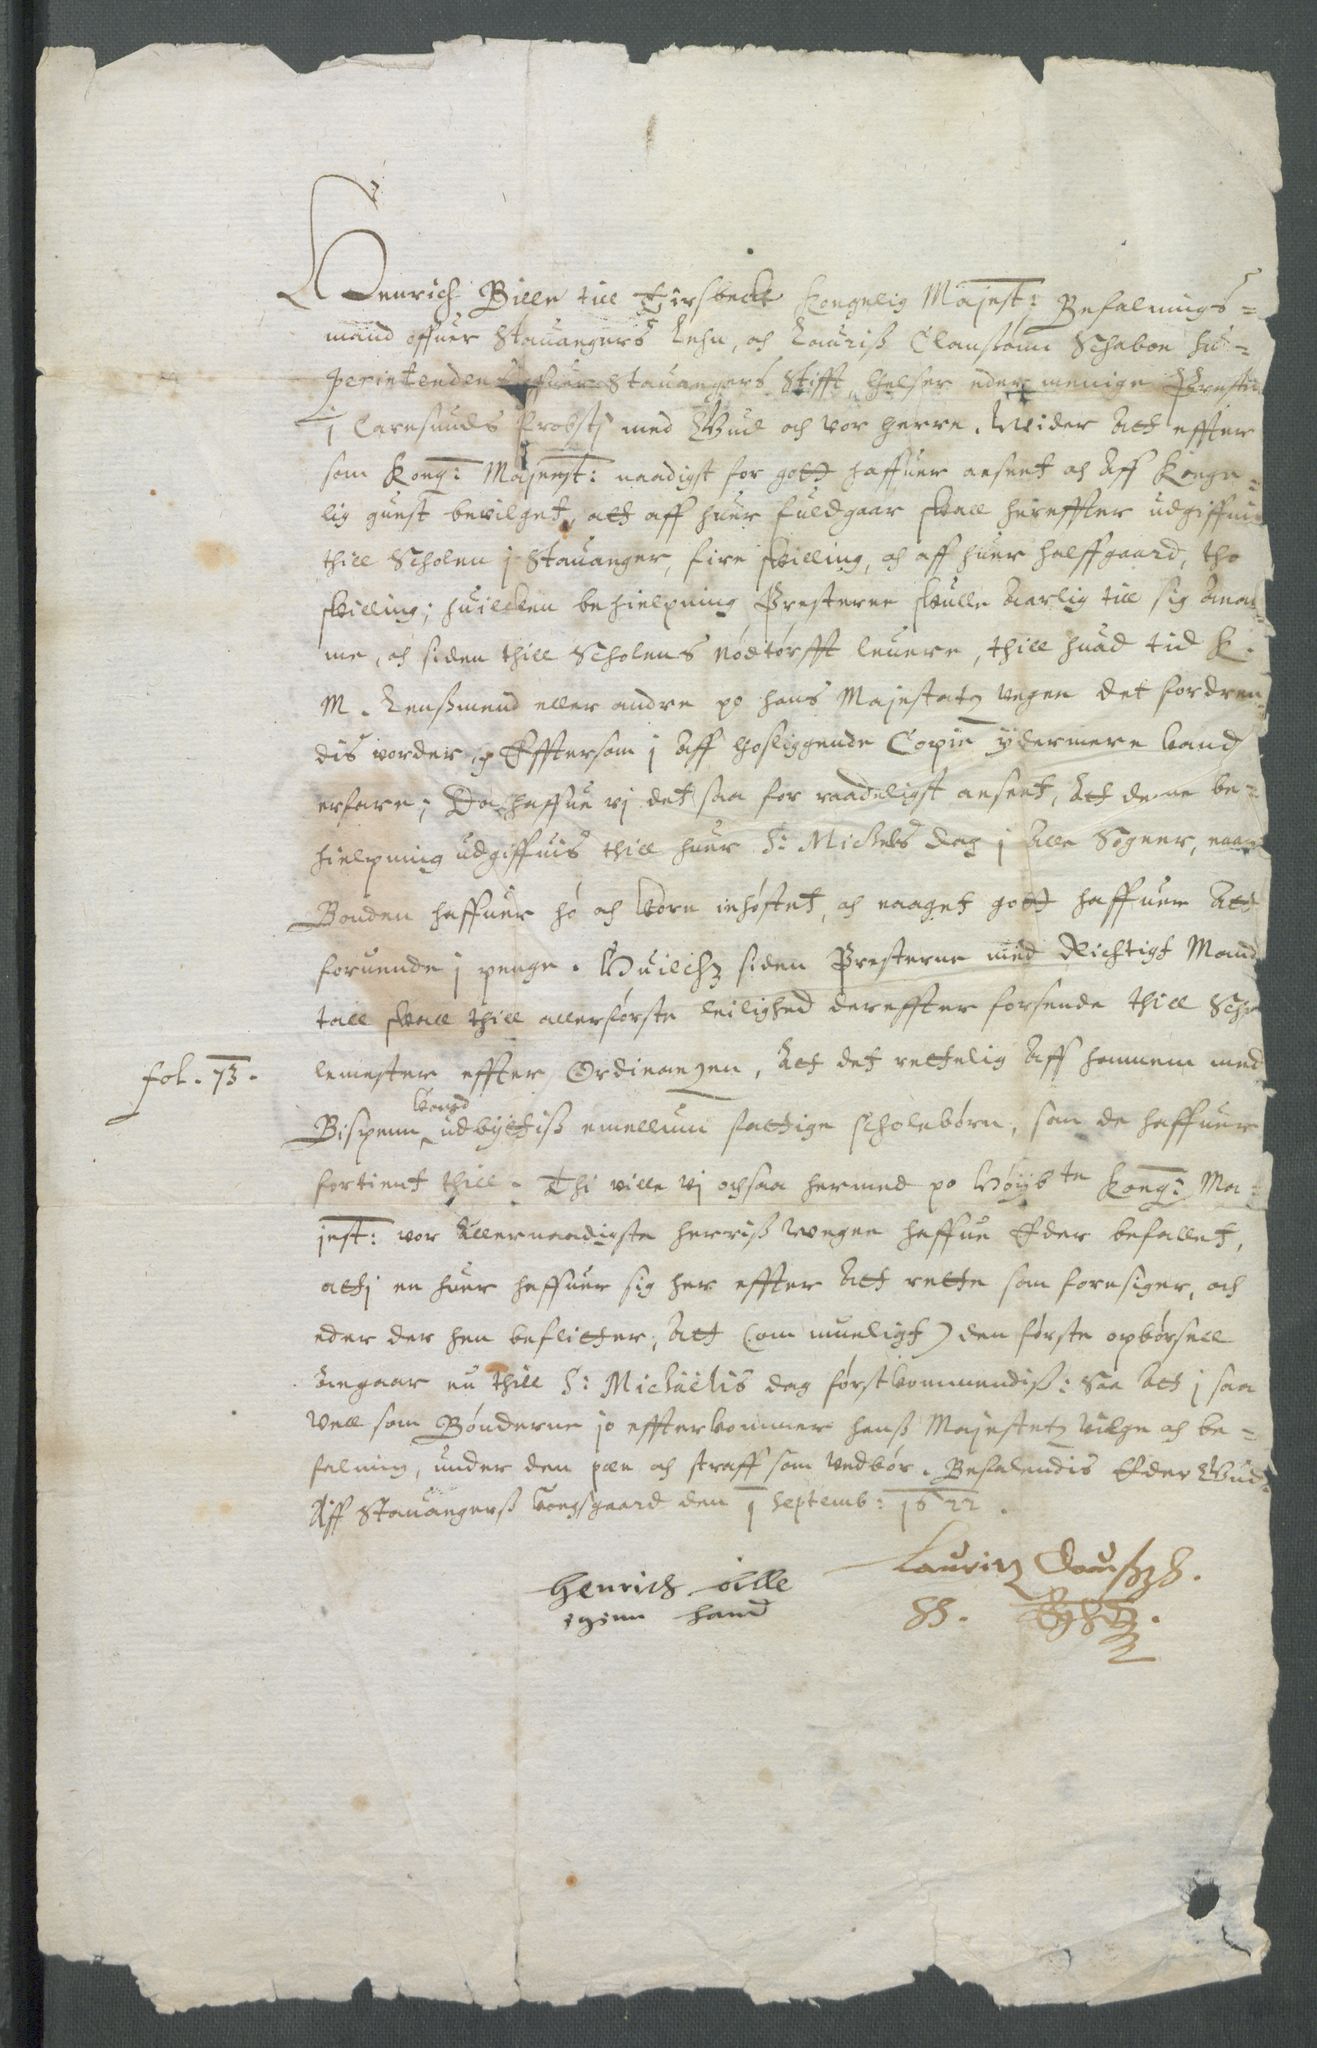 Henrich Bille till Tirsbeck Kongelig Majest: Befalnings=
mand offuer Stauangers Lehn, och Lauriß Claussønn Schabou Su=
perintendent offuer Stauangers Stifft, helser eder menige Prester
i Caresunds Probstj med Gud och vor herre. Wider att effter
som Kong: Majest: naadigst for gott haffuer anseet och aff Konge=
lig gunst bevilget, att aff huer fuldgaar skall hereffter udgiffuis
thill Scholen j Stauanger, fire skilling, och aff huer halffgaard, tho
skilling; huilcken behielpning Presterne skulle aarlig till sig anam=
me, och siden thill Scholens nødtørfft leuere, thill huad tid K.
M. Lenßmend eller andre po hans Majestatz vegen det fordren=
dis vorder, Efftersom j aff hosliggende Copie ydermere kand
erfare; Da haffue vj det saa for raadeligst anseet, att denne be=
hielpning udgiffuis thill huer S: Michels dag j alle Sogner, naar
Bonden haffuer hø och korn inhøstet, och naaget gott haffuer att
foruende j penge. Huilchz siden Presterne med Richtigt Mand
tall skall thill allerførste leilighed dereffter forsende thill Scho
lemester effter Ordinanzen, att det rettelig aff hannem med
fol. 73.
Bispenn kand udbyttiß emellum fattige scholebørn, som de haffuer
fortient thill. Thi ville vj ochsaa hermed po Høyb te Kong: Ma=
jest: vor allernaadigste herriß wegne haffue Eder befallet,
att j en huer haffuer sig her effter att rette som foresiger, och
eder der hen beflitter, att (om mueligt) den første opbørsell
angaar nu thill S: Michaelis dag førstkommendiß: Saa att j saa
vell som Bønderne jo effterkommer hanß Majestetz vilge och be=
falning, under den pæn och straff som vedbør. Befalendis Eder Gud.
Aff Stauangerß kongsgaard den 1 Septemb: 1622.
Henrich bille
egenn hand
Lauritz